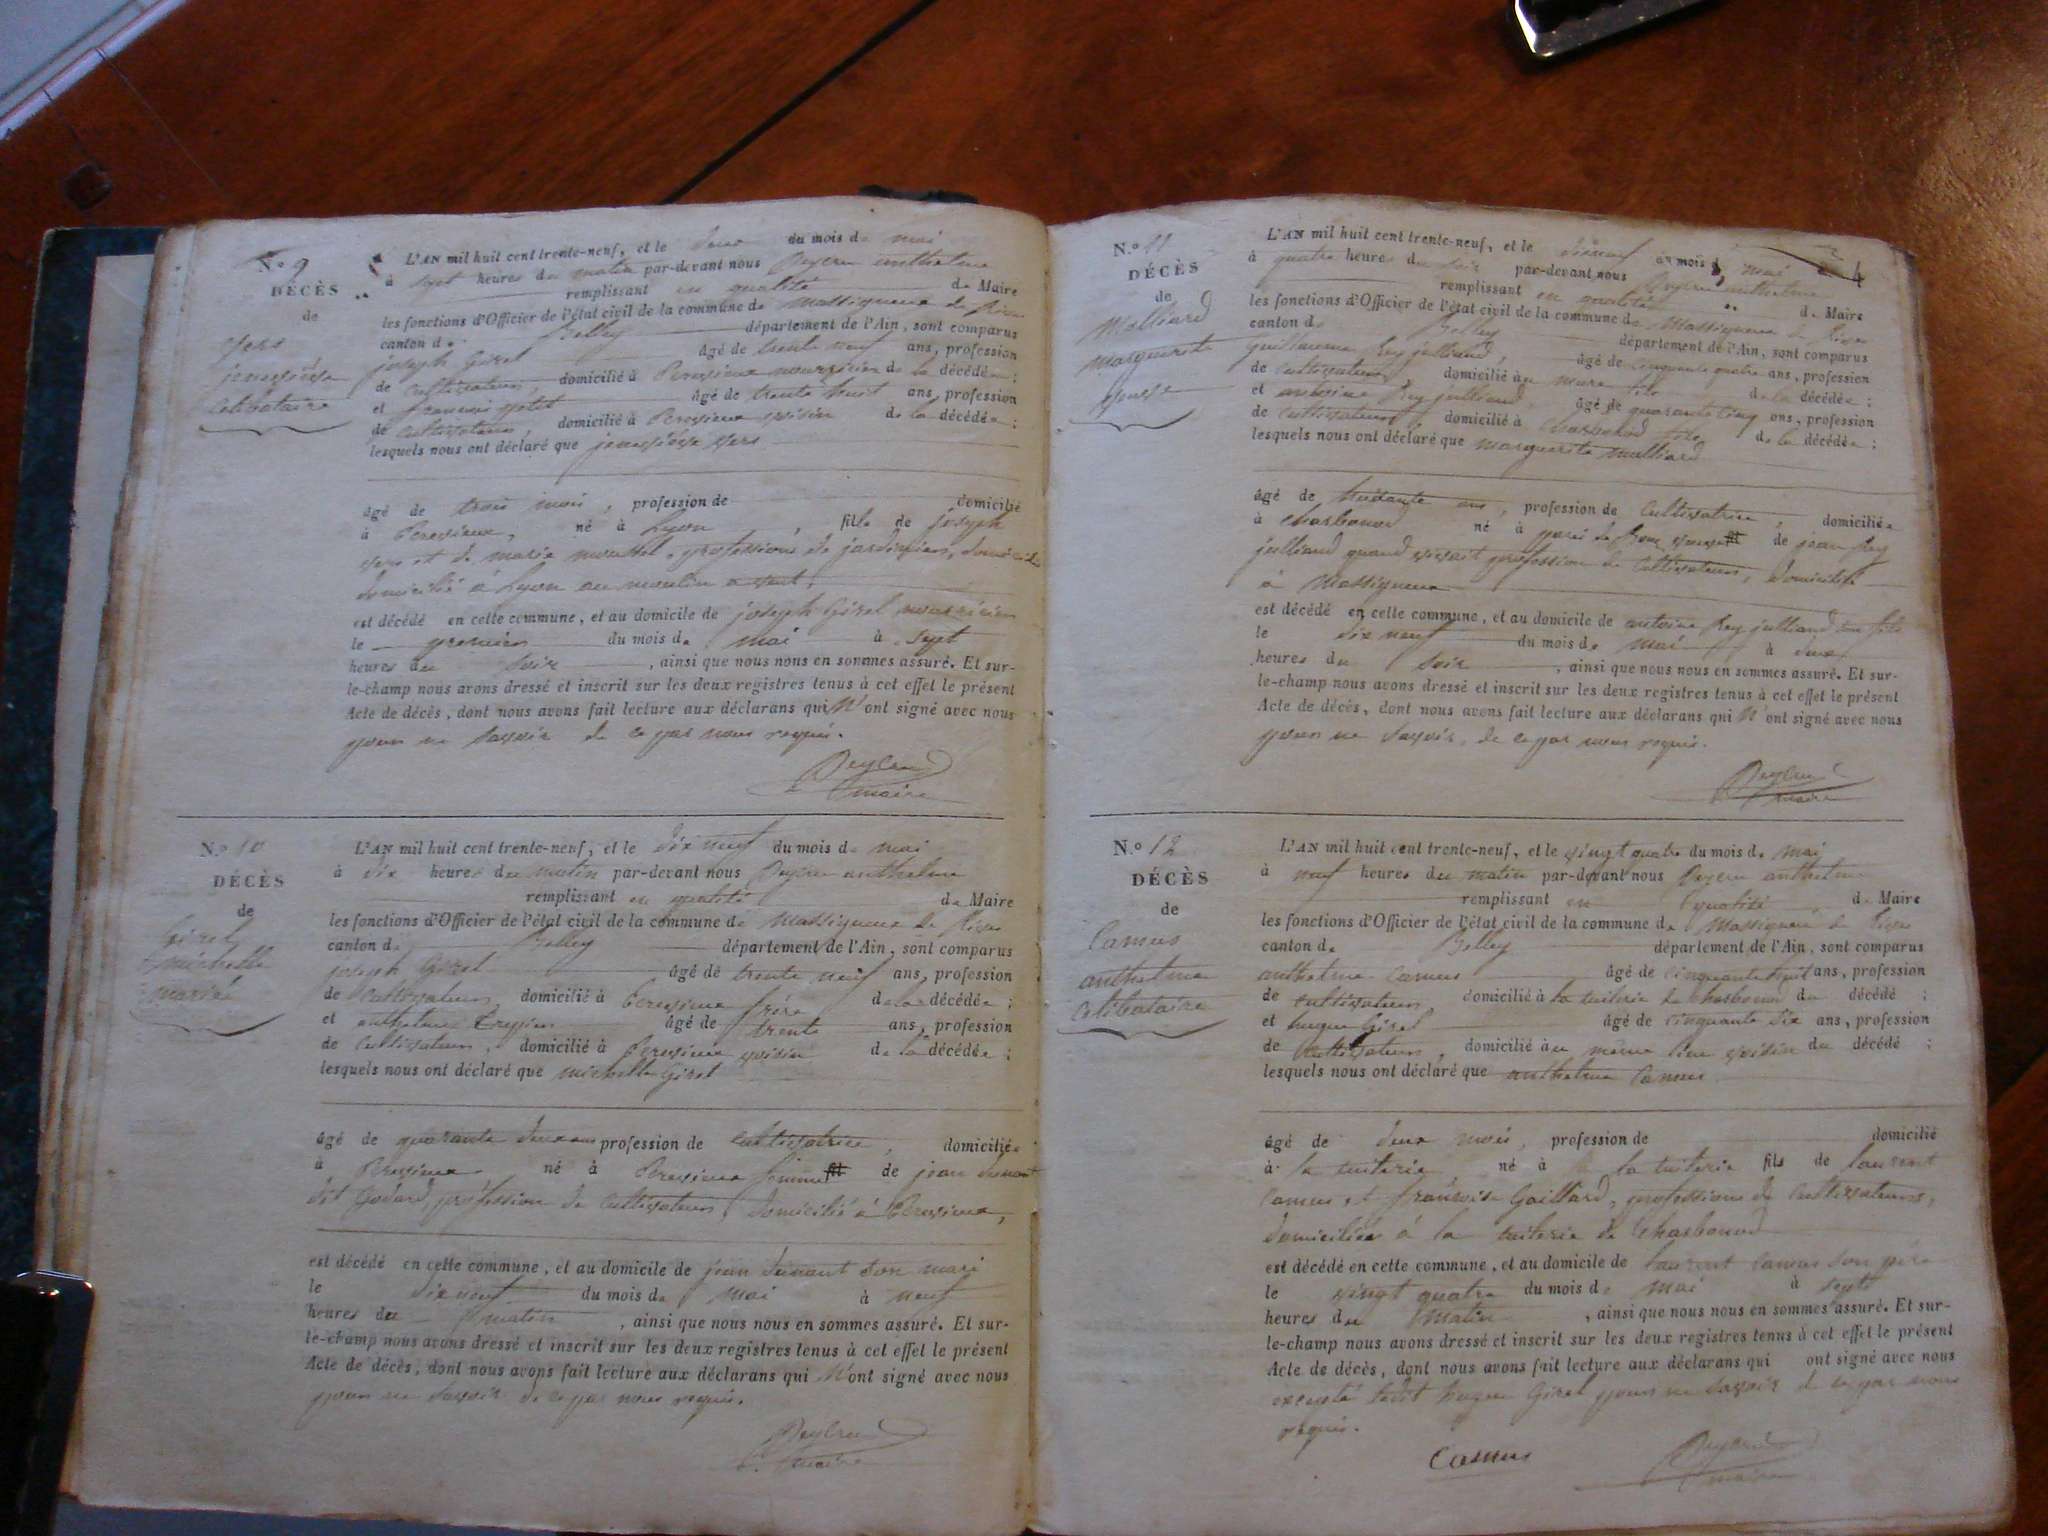 N.º 9
DÉCÈS
de
jenevieve
Celibataire
L'AN mil huit cent trente-neuf, et le deux du mois de mai
à sept heures du matin par-devant nous anthelme
remplissant en qualité de Maire
les fonctions d'Officier de l'état civil de la commune de Massigneux de Rives
canton de Belley département de l'Ain, sont comparus
joseph Girel âgé de trente neuf ans, profession
de Cultivateur, domicilié à nourricier de la décédée ;
et francois âgé de trente huit ans, profession
de Cultivateur, domicilié à voisin de la décédée ;
lesquels nous ont déclaré que jenevieve
âgé de trois mois, profession de domicilié
à né à Lyon, fille de joseph
et de marie professions de jardiniers,
domicilié à Lyon au moulin a vent,
est décédé en cette commune, et au domicile de joseph Girel nourricier
le premier du mois de mai à sept
heures du soir, ainsi que nous nous en sommes assuré. Et sur-
le-champ nous avons dressé et inscrit sur les deux registres tenus à cet effet le présent
Acte de décès, dont nous avons fait lecture aux déclarans qui N'ont signé avec nous
pour ne savoir de ce par nous requis.
maire
N.º 10
DÉCÈS
de
Girel
michelle
mariée
L'AN mil huit cent trente-neuf, et le dix neuf du mois de mai
à dix heures du matin par-devant nous anthelme
remplissant en qualité de Maire
les fonctions d'Officier de l'état civil de la commune de Massigneux de Rives
canton de Belley département de l'Ain, sont comparus
joseph Girel âgé de trente neuf ans, profession
de Cultivateur, domicilié à frère de la décédée ;
et anthelme âgé de trente ans, profession
de Cultivateur, domicilié à voisin de la décédée ;
lesquels nous ont déclaré que michelle Girel
âgé de quarante deux ans profession de cultivatrice, domiciliée
à né à femme de jean dunant
dit Godard, profession de Cultivateur, domicilié à
est décédé en cette commune, et au domicile de jean dunant son mari
le dix neuf du mois de mai à neuf
heures du matin, ainsi que nous nous en sommes assuré. Et sur-
le-champ nous avons dressé et inscrit sur les deux registres tenus à cet effet le présent
Acte de décès, dont nous avons fait lecture aux déclarans qui N'ont signé avec nous
pour ne savoir de ce par nous requis.
maire
4
N.º 11
DÉCÈS
de
Molliard
marguerite
L'AN mil huit cent trente-neuf, et le dixneuf du mois de mai
à quatre heures du soir par-devant nous anthelme
remplissant en qualité de Maire
les fonctions d'Officier de l'état civil de la commune de Massigneux de Rives
canton de Belley département de l'Ain, sont comparus
Guillaume Rey julliand, âgé de cinquante quatre ans, profession
de Cultivateur, domicilié à fils de la décédée ;
et antoine Rey julliand, âgé de quarante cinq ans, profession
de Cultivateur, domicilié à Charbonod fils de la décédée ;
lesquels nous ont déclaré que marguerite Molliard
âgé de huitante ans, profession de Cultivatrice, domiciliée
à Charbonod né à veuve de jean Rey
julliand quand vivait profession de Cultivateur, domicilié
à Massigneux
est décédé en cette commune, et au domicile de antoine Rey julliand son fils
le dix neuf du mois de mai à deux
heures du soir, ainsi que nous nous en sommes assuré. Et sur-
le-champ nous avons dressé et inscrit sur les deux registres tenus à cet effet le présent
Acte de décès, dont nous avons fait lecture aux déclarans qui N'ont signé avec nous
pour ne savoir, de ce par nous requis.
maire
N.º 12
DÉCÈS
de
Camus
anthelme
Celibataire
L'AN mil huit cent trente-neuf, et le vingt quatre du mois de mai
à neuf heures du matin par-devant nous anthelme
remplissant en qualité de Maire
les fonctions d'Officier de l'état civil de la commune de Massigneux de Rives
canton de Belley département de l'Ain, sont comparus
anthelme Camus âgé de cinquante huit ans, profession
de cultivateur domicilié à la tuilerie de Charbonod du décédé ;
et hugue Girel âgé de cinquante six ans, profession
de Cultivateur, domicilié à au même lieu voisin du décédé ;
lesquels nous ont déclaré que anthelme Camus
âgé de deux mois, profession de domicilié
à la tuilerie né à la tuilerie fils de laurent
Camus et françoise Gaillard, professions de Cultivateurs,
domiciliés à la tuilerie de Charbonod
est décédé en cette commune, et au domicile de laurent Camus son père
le vingt quatre du mois de mai à sept
heures du matin, ainsi que nous nous en sommes assuré. Et sur-
le-champ nous avons dressé et inscrit sur les deux registres tenus à cet effet le présent
Acte de décès, dont nous avons fait lecture aux déclarans qui ont signé avec nous
excepté ledit hugue Girel pour ne savoir de ce par nous
requis.
Camus
maire